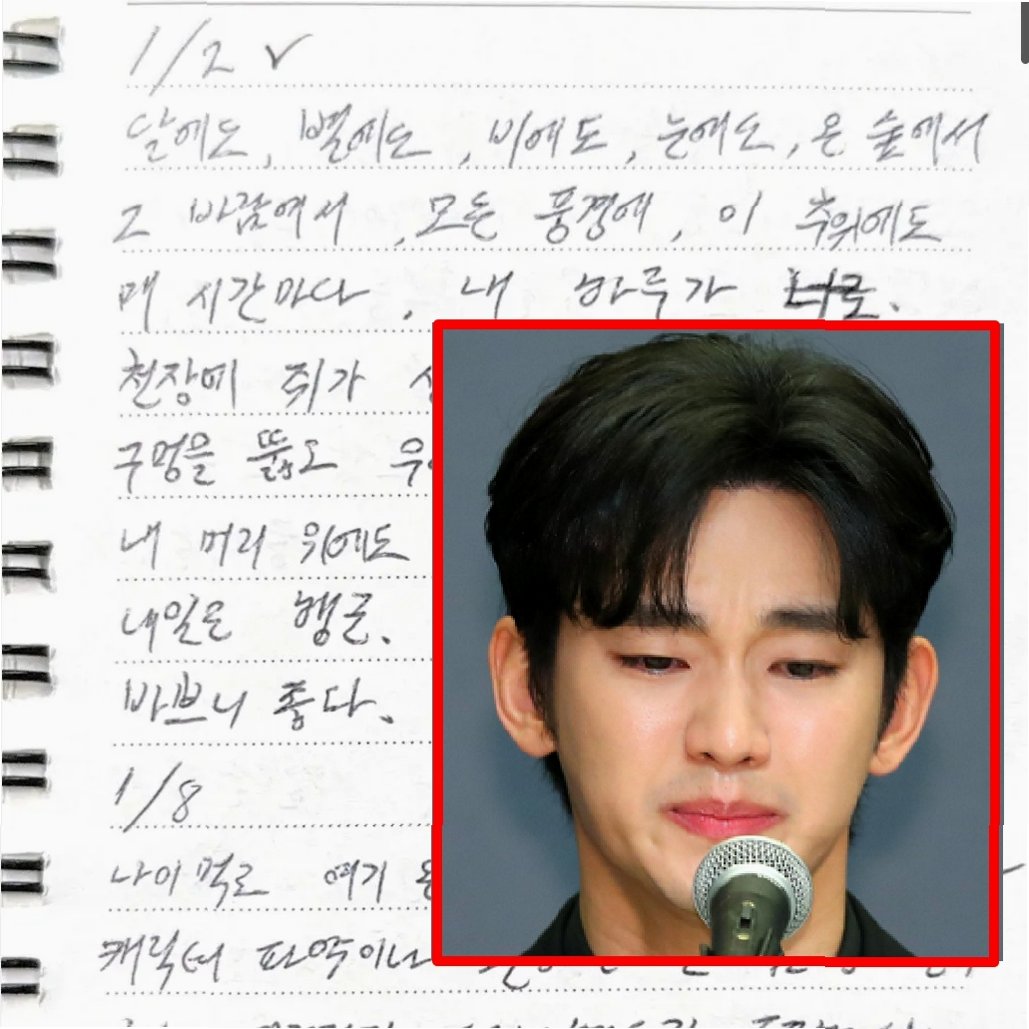 1/2 ✓
달에도, 별에도, 비에도, 눈에도, 온 숲에서
그 바람에서, 모든 풍경에, 이 추위에도
매 시간마다, 내 하루가 너로.
천장에 쥐가
구멍을 뚫고
내 머리 위에도
내일은 행군.
바쁘니 좋다.
1/8
나이 먹고 여기
캐릭터 파악이나